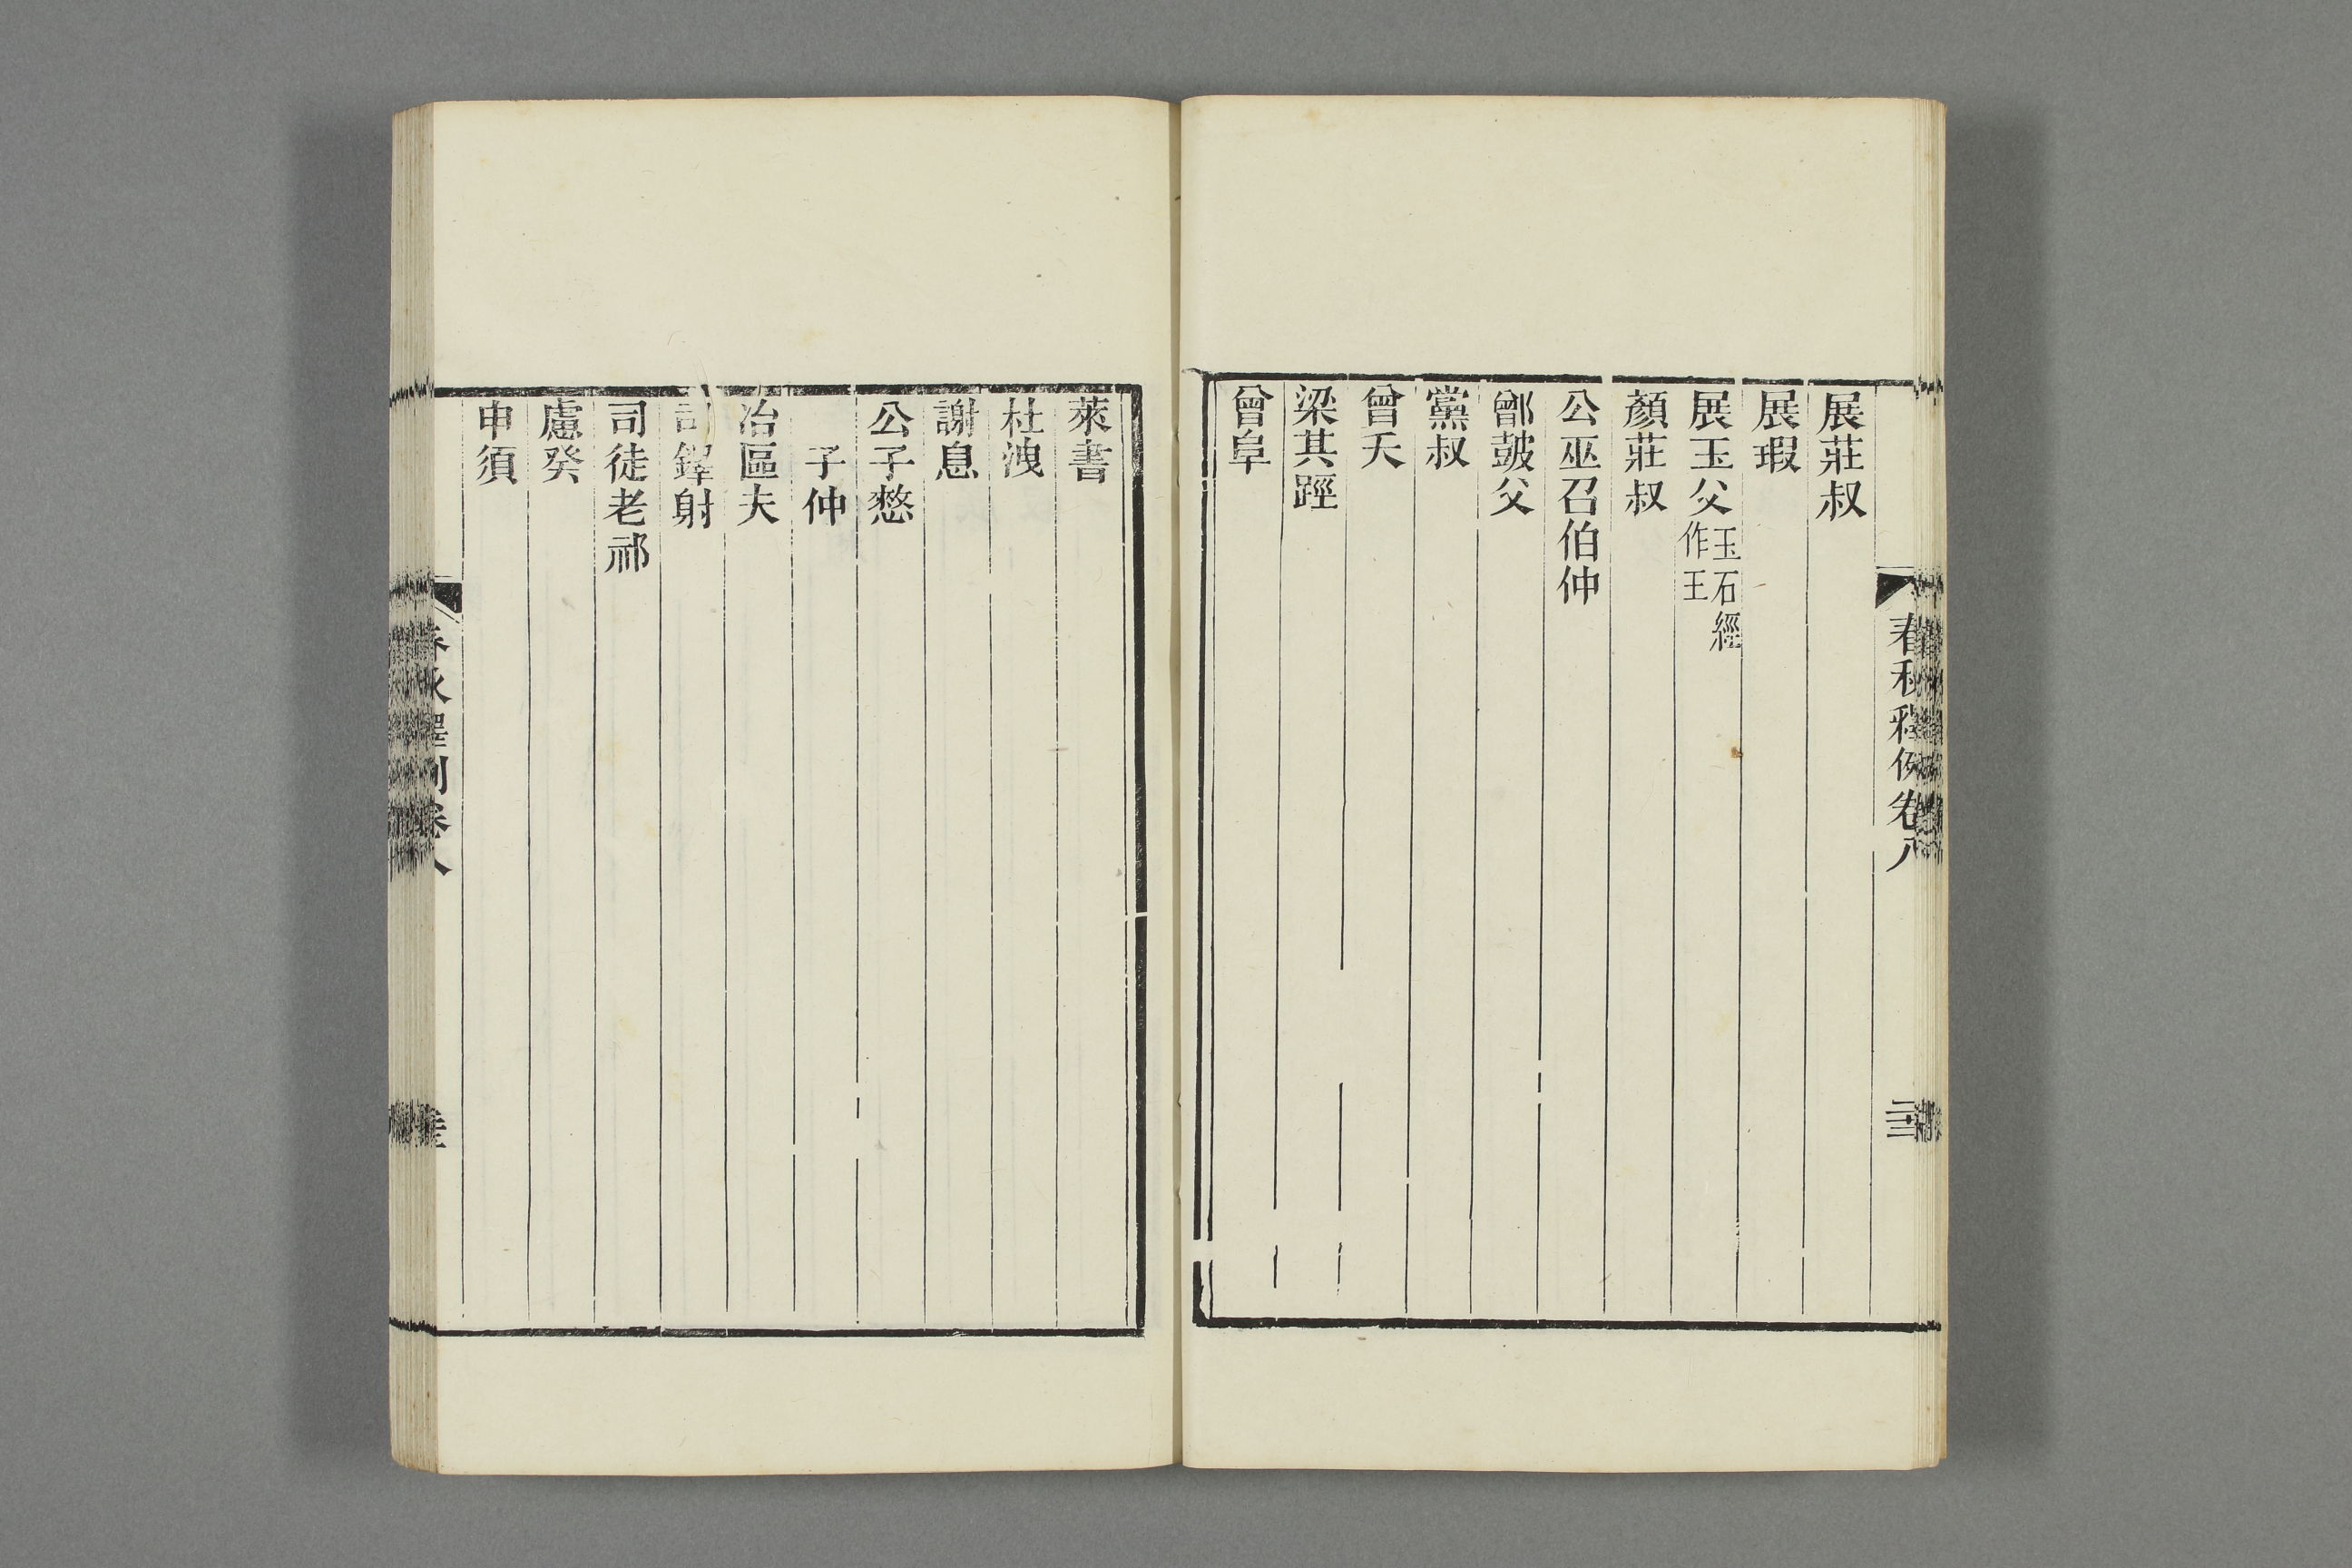 展莊叔
展瑕
展玉父玉石經作王
顏莊叔
公巫召伯仲
鄫鼓父
黨叔
曾夭
梁其踁
曾阜
萊書
杜洩
謝息
公子憖
子仲
冶區夫
司鐸射
司徒老祁
慮癸
申須
春秋釋例卷八